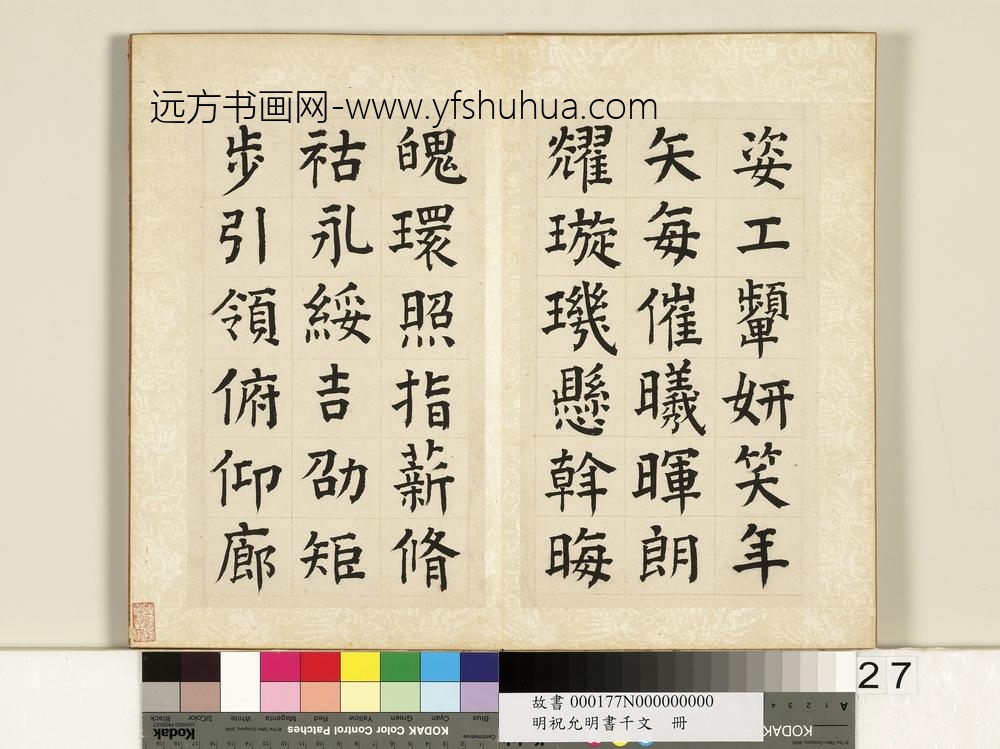 远方书画网-www.yfshuhua.com
姿工顰妍笑年
矢每催曦暉朗
耀璇璣懸斡晦
魄環照指薪脩
祜永綏吉劭矩
步引領俯仰廊
27
故書 000177N000000000
明祝允明書千文 冊
KODAK
Kodak
KODAK Color Control Patches
Blue Cyan Green Yellow Red Magenta White 3/Color Black